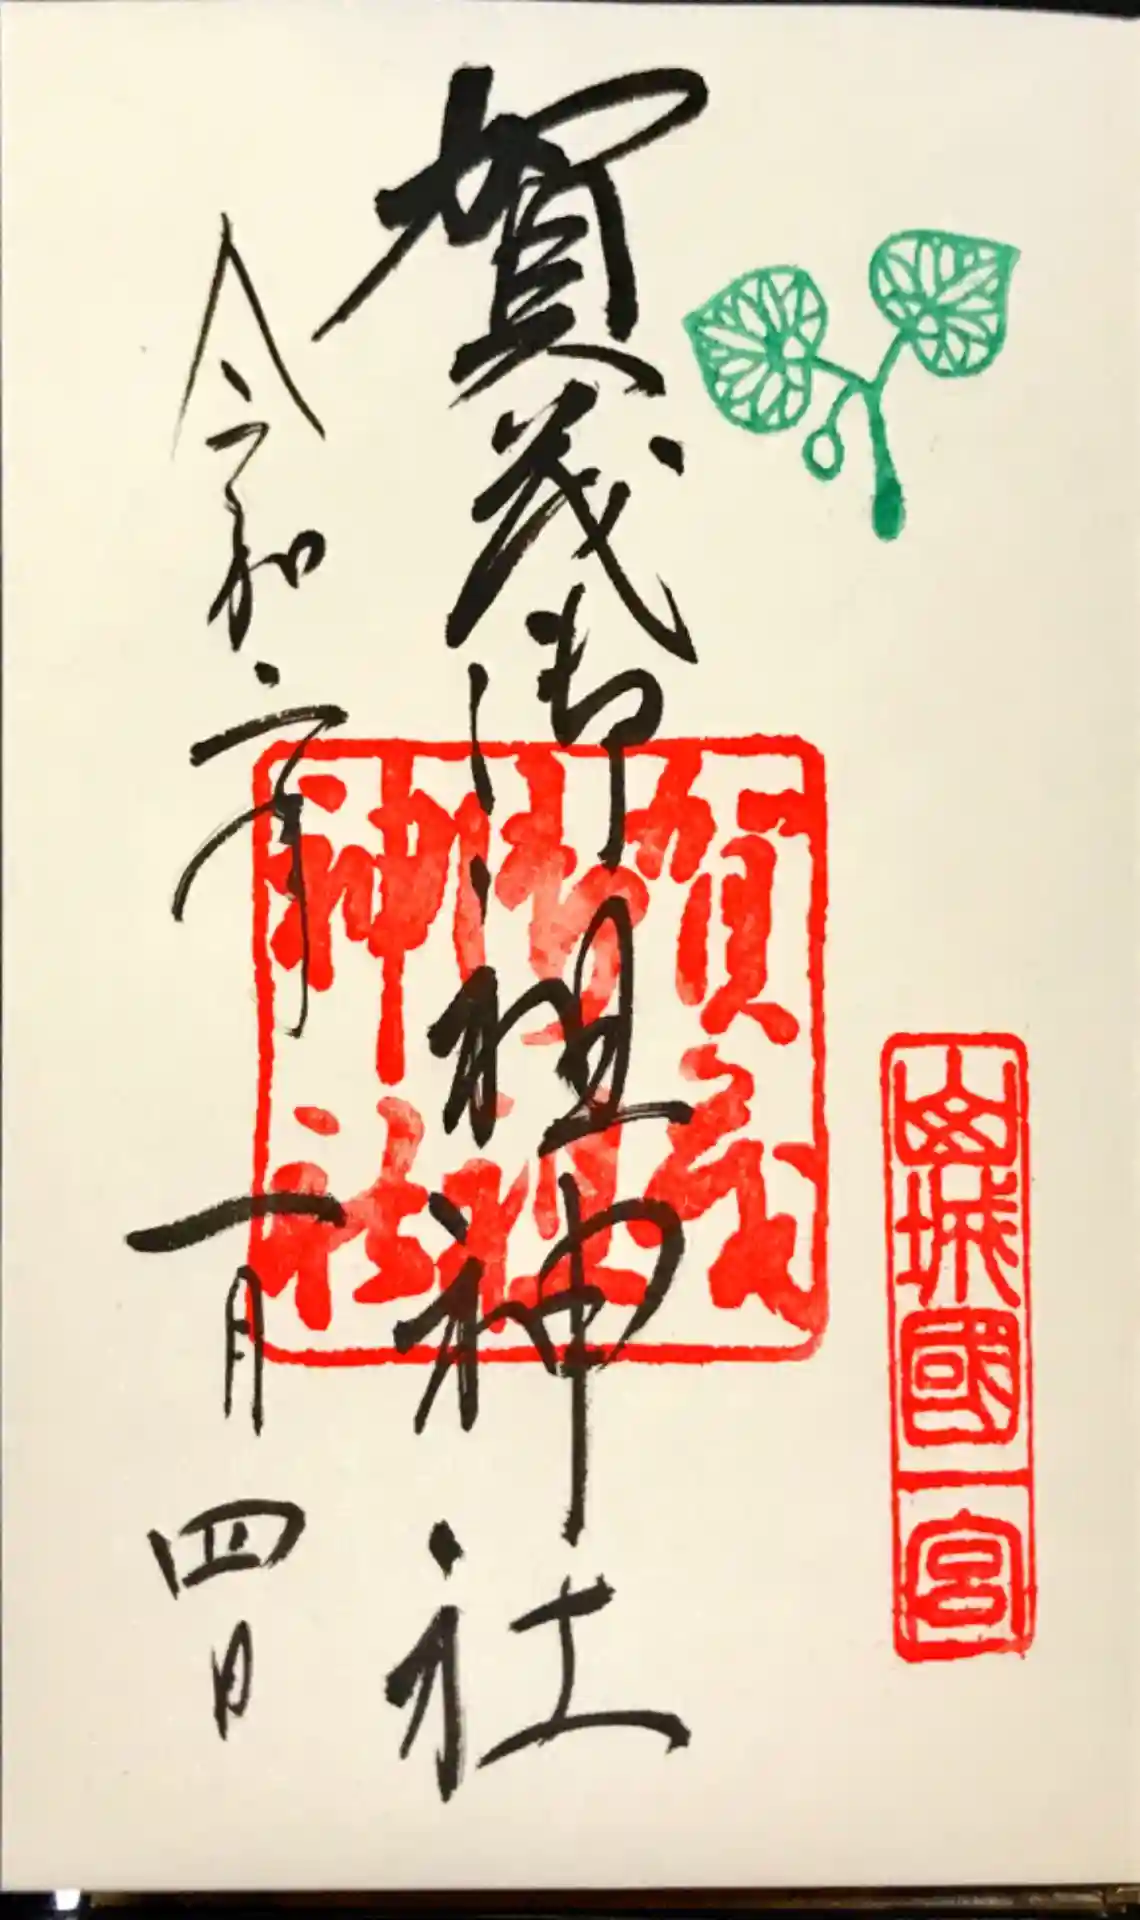 山城國一宮
賀茂御祖神社
賀茂
御祖
神社
令和二年一月四日